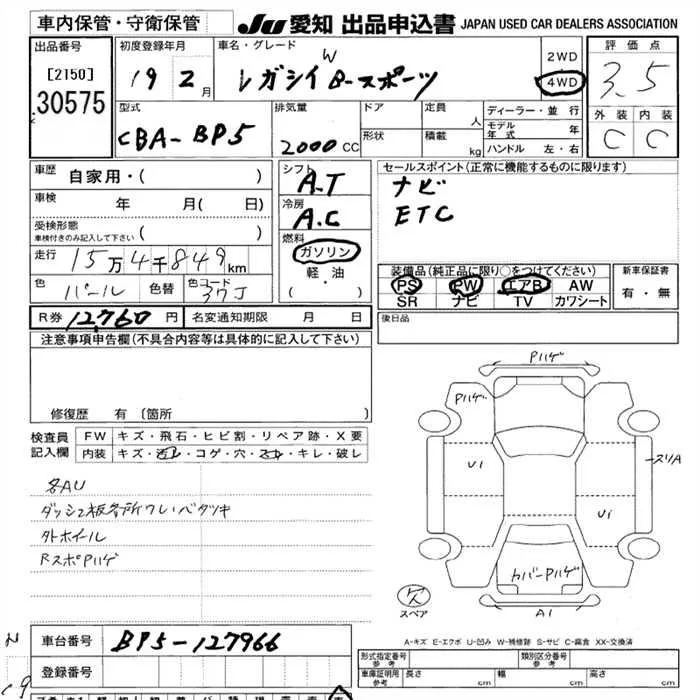 車内保管・守衛保管
JU 愛知 出品申込書 JAPAN USED CAR DEALERS ASSOCIATION
出品番号
[2150]
30575
初度登録年月
19 2月
車名・グレード
レガシイ W B-スポーツ
2WD
4WD
評価点
3.5
外装 内装
C C
型式
CBA-BP5
排気量
2000 CC
ドア
形状
定員 人
積載 kg
ディーラー・並行
モデル年式 年
ハンドル 左・右
車歴 自家用・( )
車検 年 月( 日)
受検形態
車検付きのみ記入して下さい ( )
走行 15万4千849km
色 パール 色替 色コード 37J
シフト
A.T
冷房
A.C
燃料
ガソリン
軽・油
( ・ )
セールスポイント(正常に機能するものに限ります)
ナビ
ETC
装備品(純正品に限り○をつけてください)
PS PW エアB AW
SR ナビ TV カワシート
新車保証書
有・無
R券 12,760 円 名変通知期限 月 日
後日品
注意事項申告欄(不具合内容等は具体的に記入して下さい)
修復歴 有 [箇所
検査員記入欄
FW キズ・飛石・ヒビ割・リペア跡・X要
内装 キズ・ コゲ・穴・ キレ・破レ
各AU
ダッシュ板各所ワレ・ベタツキ
外ホイール
RスポPハゲ
Pハゲ
Pハゲ
U1
U1
スリA
カバーPハゲ
A1
欠
スペア
A-キズ E-エクボ U-凹み W-補修跡 S-サビ C-腐食 XX-交換済
車台番号 BP5-127966
登録番号
形式指定番号
参考
類別区分番号
参考
車庫証明用
参考
長さ cm 幅 cm 高さ cm